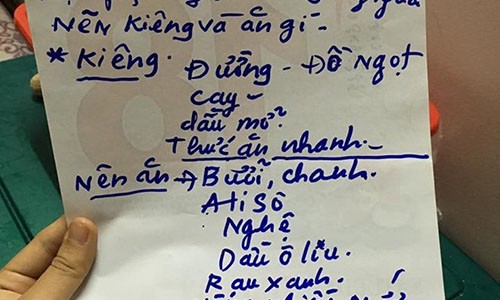 NÊN KIÊNG và ăn gì -
* Kiêng. Đường - Đồ NGỌT
cay -
dầu mỡ.
Thức ăn nhanh. -
Nên ăn → Bưởi, chanh.
AtiSô
Nghệ
Dầu ô liu.
Rau xanh.